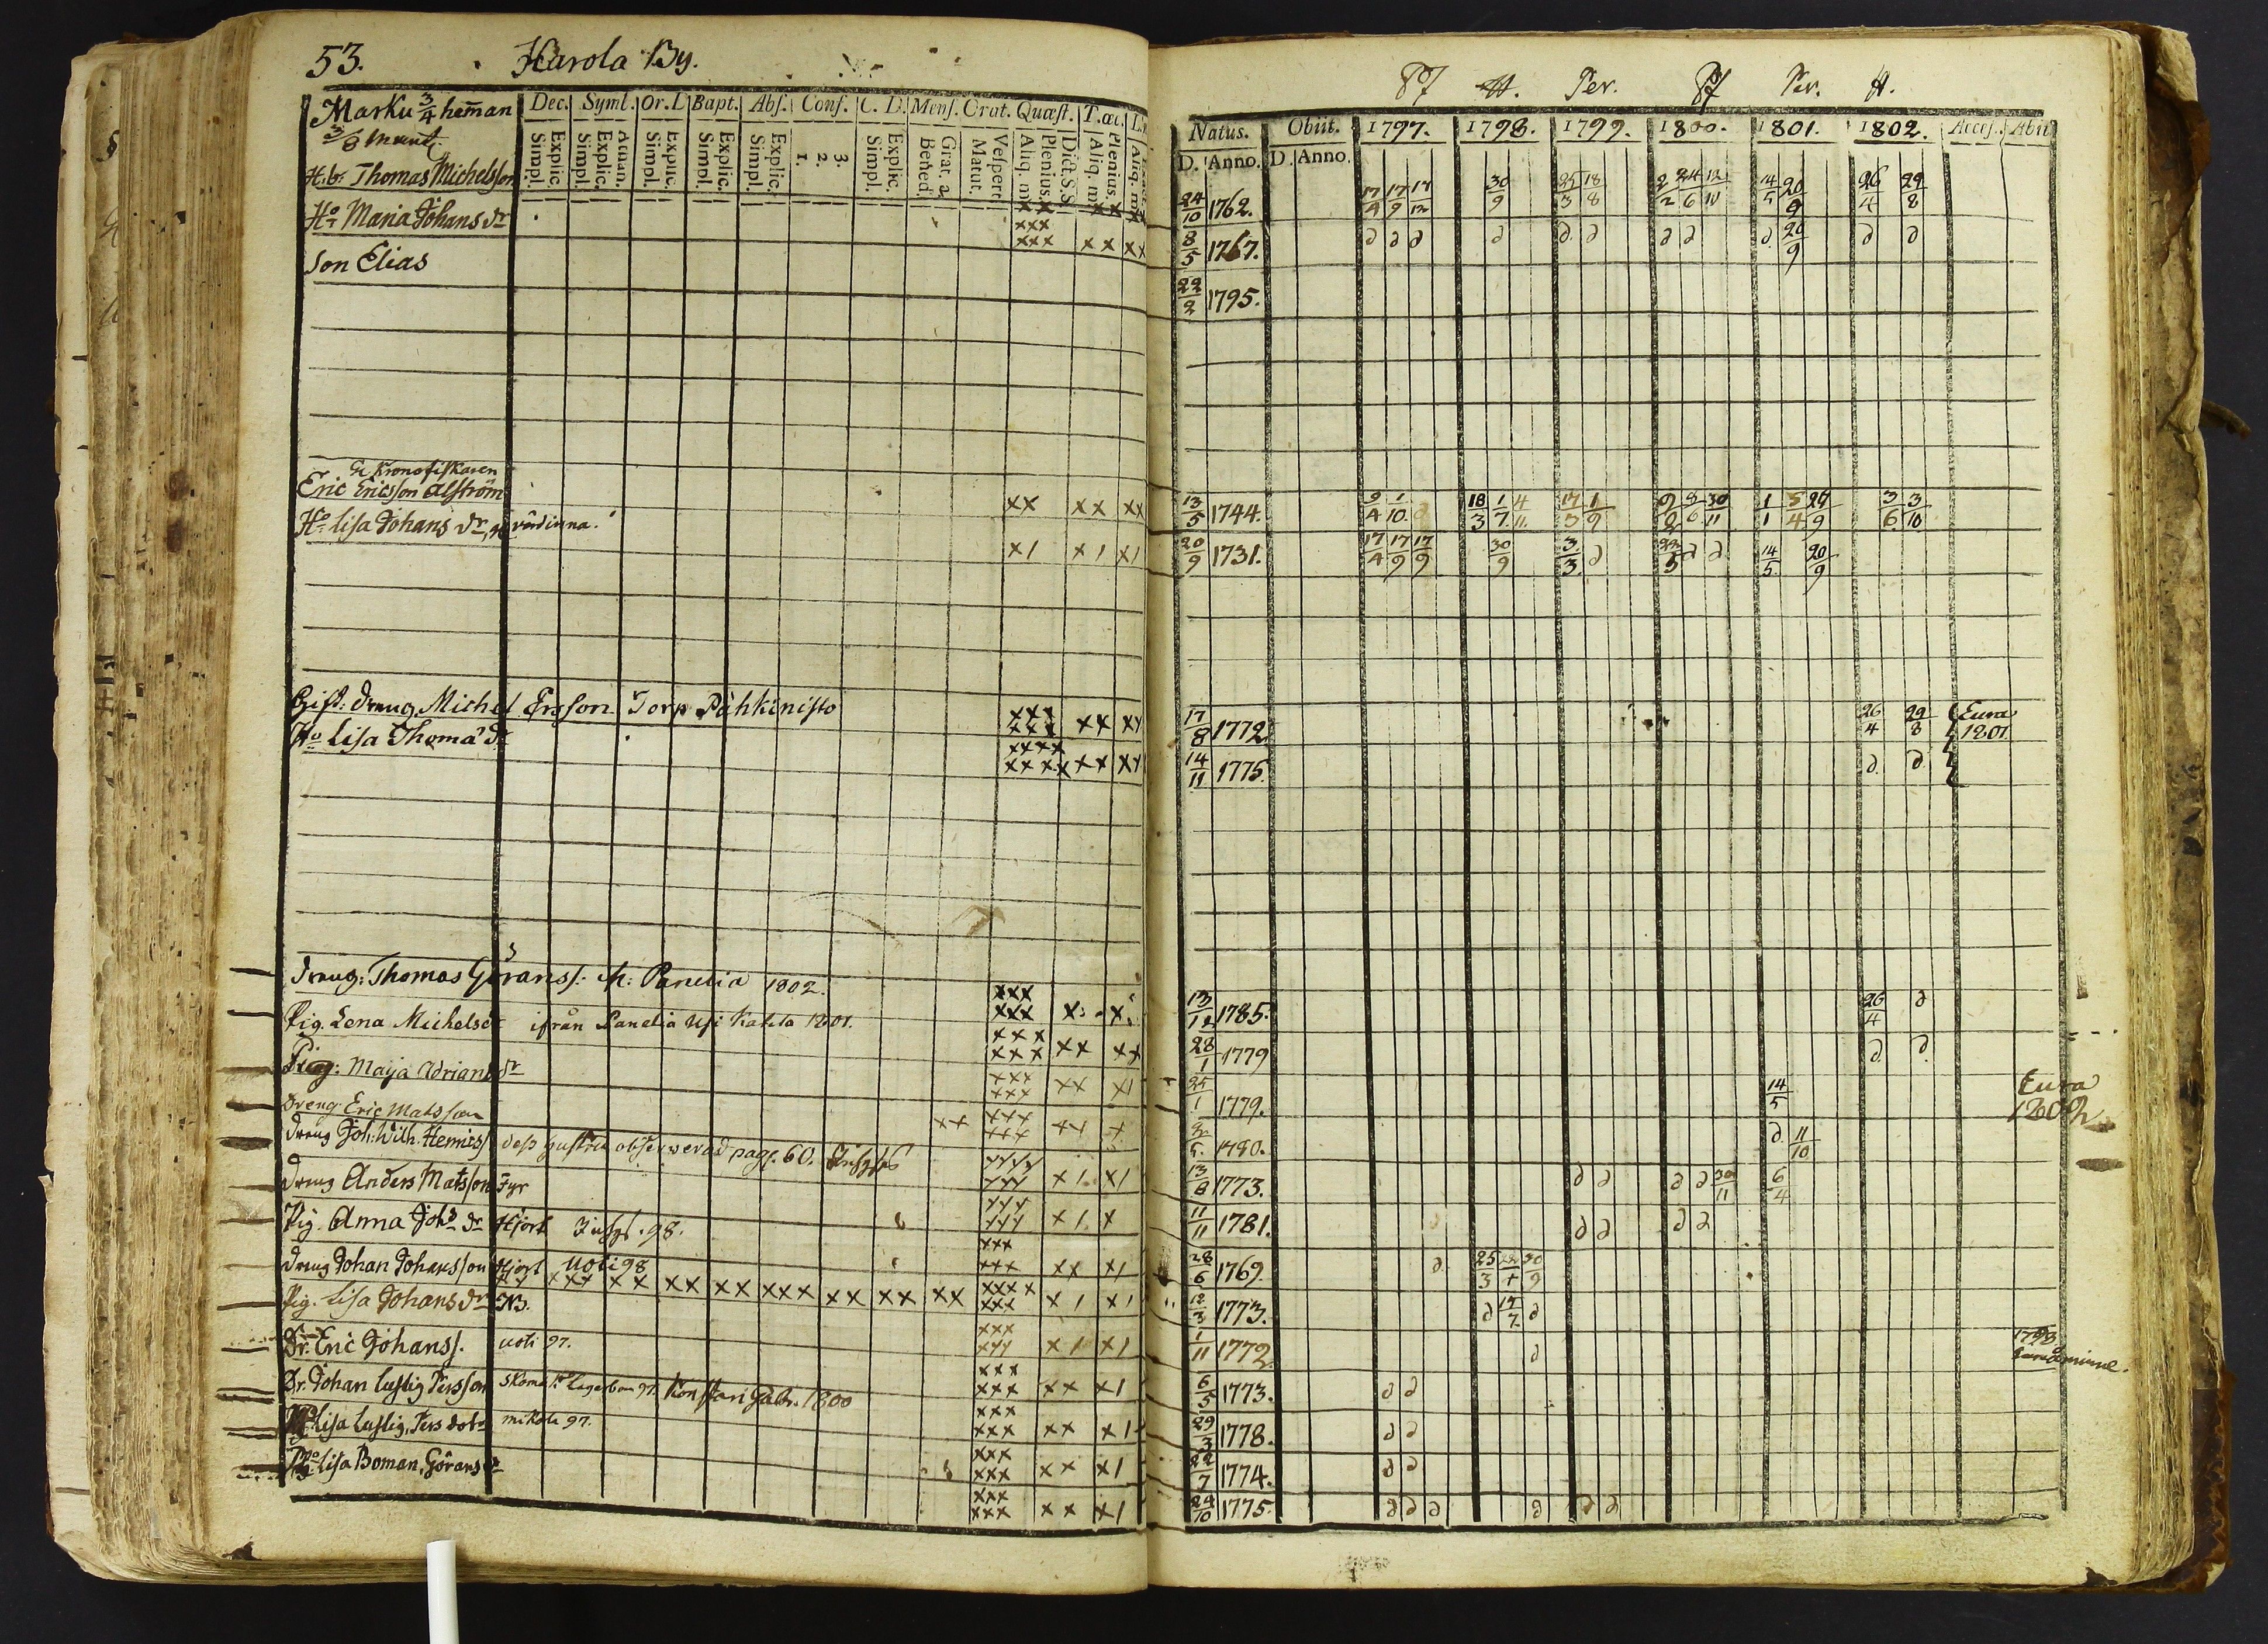 53. Harola By.
Pf H. Per. Pf Per. H.
Marku 3/4 heman Dec. Symb. Or. D. Bapt. Abs. Conf. C. D. Mens. Orat. Quæst. T. œc.
3/8 mant. Simpl. Explic. Simpl. Explic. Athan. Simpl. Explic. Simpl. Explic. Simpl. Explic. 1. 2. 3. Simpl. Explic. Bened. Grat. a. Matut. Vespert. Aliq. m. Plenius. Dict. S. S. Aliq. m. Plenius. Aliq. m.
Natus. Obiit. 1797. 1798. 1799. 1800. 1801. 1802. Acces. Abiit
D. Anno. D. Anno.
H.b. Thomas Michelsson xx xx 24/10 1762. 17/4 17/9 30/9 25/3 18/8 14/5 20/9 26/4 29/8
Ho Maria Johans dr xxx xxx xx xx 8/5 1767. d d d d d. d d d d. 20/9 d d
Son Elias 22/2 1795.
Kronofiskaren
Eric Ericsson Alström xx xx xx 13/5 1744. 9/4 1/10 d 18/3 1/7 4/11 17/3 1/9 2/2 8/6 30/11 1/1 5/4 27/9 3/6 3/10
Ho Lisa Johans dr, värdinna. x1 x1 x1 20/9 1731. 17/4 17/9 17/9 30/9 3/3 d d d 14/5 20/9
Gift: dreng Michel Ersson Torp Pähkinisto xxx xxx xx xx 17/8 1772 26/4 29/8 Eura 1801.
Ho Lisa Thoma dr xxxx xxxx xx xx 14/11 1775. d. d.
dreng: Thomas Göranss: Panelia 1802. xxx xxx x: x: 13/12 1785. 26/4 d
Pig. Lena Michelsdr ifrån Panelia Usi Kakola 1801. xxx xxx xx xx 28/1 1779 d. d.
Pig: Maja Adriansdr xxx xxx xx x1 25/1 1779. 14/5 Eura 1802
Dreng Eric Matsson xx xxx xxx xx x 1780. d. 11/10
dreng Joh: Wilh. Henrics dess hustru observerad pag. 60. x1 x1 13/8 1773. d d d d 30/11 6/4
dreng Anders Matsson Fyr x1 x 11/11 1781. d d d d
Pig. Anna Johs dr Hjort 98. xxx xxx xx x1 28/6 1769. d. 25/3 30/9
dreng Johan Johansson Hjort Uoti 98
Pig. Lisa Johans dr NB. xx xxx xx xx xx xxx xx xx xx xxxx xxx x1 x1 12/3 1773. d 17/7 d
Dr. Eric Johanss. uoti 97. x1 x1 1/11 1772. d 1798
Dr. Johan Lustig Persson Skoma Lagerbom 97. Konstari Gabr. 1800 xxx xxx xx x1 6/5 1773. d d
Lisa Lustig, Pers dotr mikola 97. xxx xxx xx x1 29/3 1778. d d
xxx xxx xx x1 22/7 1774. d d
Lisa Boman, Görans dr xxx xxx xx x1 24/10 1775. d d d d d d